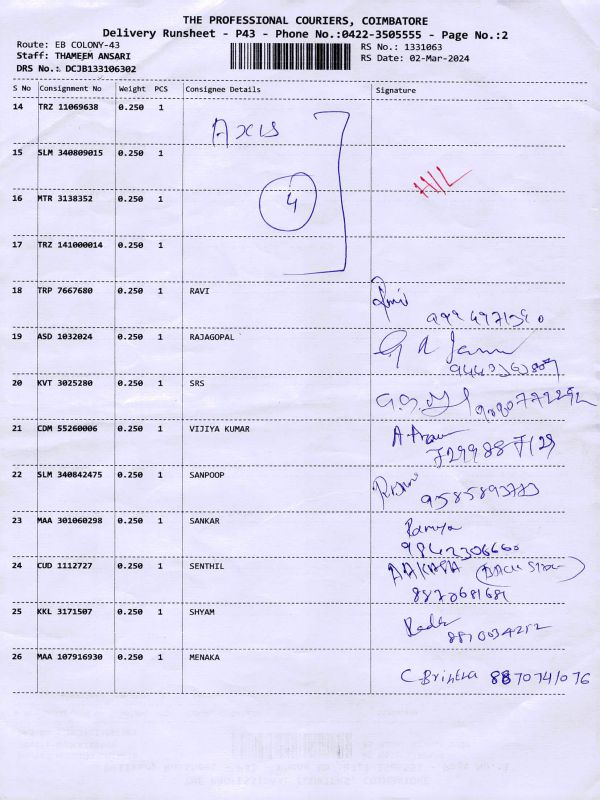 THE PROFESSIONAL COURIERS, COIMBATORE
Delivery Runsheet - P43 - Phone No.:0422-3505555 - Page No.:2
Route: EB COLONY-43 RS No.: 1331063
Staff: THAMEEM ANSARI RS Date: 02-Mar-2024
DRS No.: DCJB133106302
S No Consignment No Weight PCS Consignee Details Signature
14 TRZ 11069638 0.250 1
AXIS
15 SLM 340809015 0.250 1
16 MTR 3138352 0.250 1
4
17 TRZ 141000014 0.250 1
18 TRP 7667680 0.250 1 RAVI
19 ASD 1032024 0.250 1 RAJAGOPAL
20 KVT 3025280 0.250 1 SRS
21 CDM 55260006 0.250 1 VIJIYA KUMAR
7299887129
22 SLM 340842475 0.250 1 SANPOOP
9585893773
23 MAA 301060298 0.250 1 SANKAR
Ramya
9842230666
24 CUD 1112727 0.250 1 SENTHIL
8870681681
25 KKL 3171507 0.250 1 SHYAM
8870034212
26 MAA 107916930 0.250 1 MENAKA
8870741076